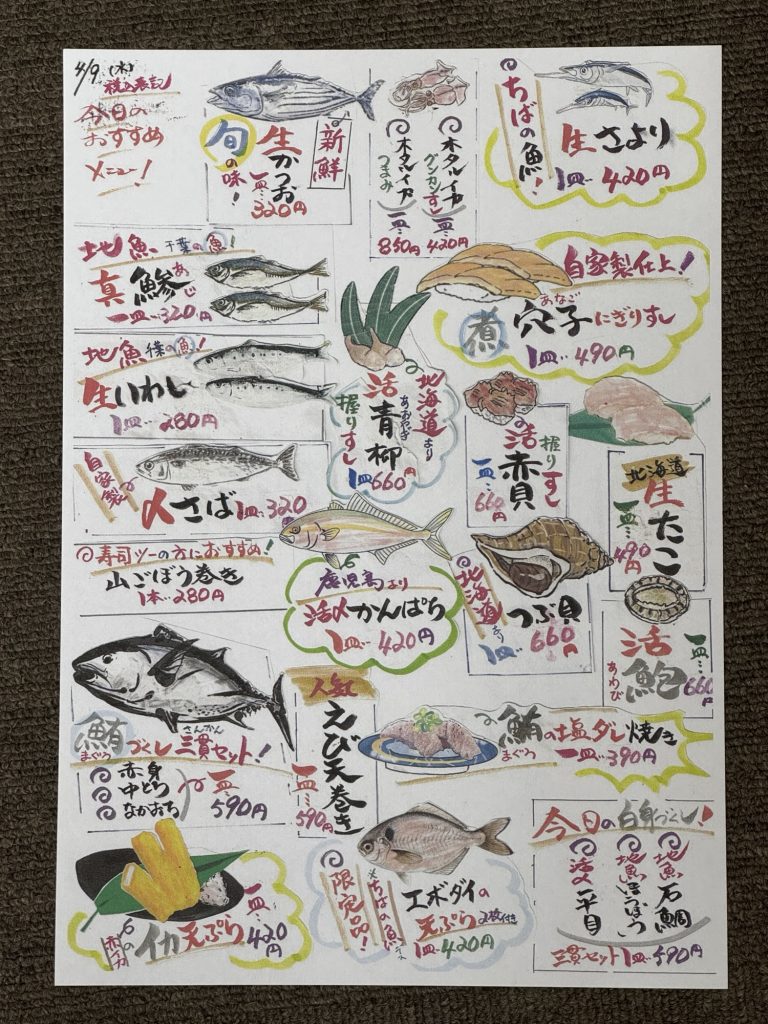 4/9 (木)
税込表記
今日の
おすすめ
メニュー!
新鮮
生かつお
一皿…320円
旬の味!
ホタルイカ
グンカンすし
一皿…420円
ホタルイカ
つまみ
一皿…850円
ちばの魚!
生さより
1皿…420円
地魚 千葉の魚!
真鯵
あじ
一皿…320円
自家製仕上!
煮穴子にぎりすし
あなご
1皿…490円
地魚 千葉の魚!
生いわし
1皿…280円
北海道より
活青柳
あおやぎ
握りすし
1皿660円
握りすし
活赤貝
一皿…660円
北海道
生たこ
一皿…490円
自家製
〆さば 1皿…320円
寿司ツーの方におすすめ!
山ごぼう巻き
1本…280円
鹿児島より
活〆かんぱち
1皿…420円
北海道より
つぶ貝
1皿…660円
活鮑
あわび
一皿…660円
鮪づくし三貫セット!
まぐろ
さんかん
赤身
中とろ
なかおち
一皿…590円
人気
えび天巻き
一皿…590円
鮪の塩ダレ焼き
まぐろ
一皿…390円
赤イカの
イカ天ぷら
一皿…420円
限定品!
ちばの魚
エボダイの
天ぷら 2枚付き
1皿…420円
今日の白身づくし!
地魚 石鯛
地魚 ほうぼう
活〆 平目
三貫セット 1皿…590円